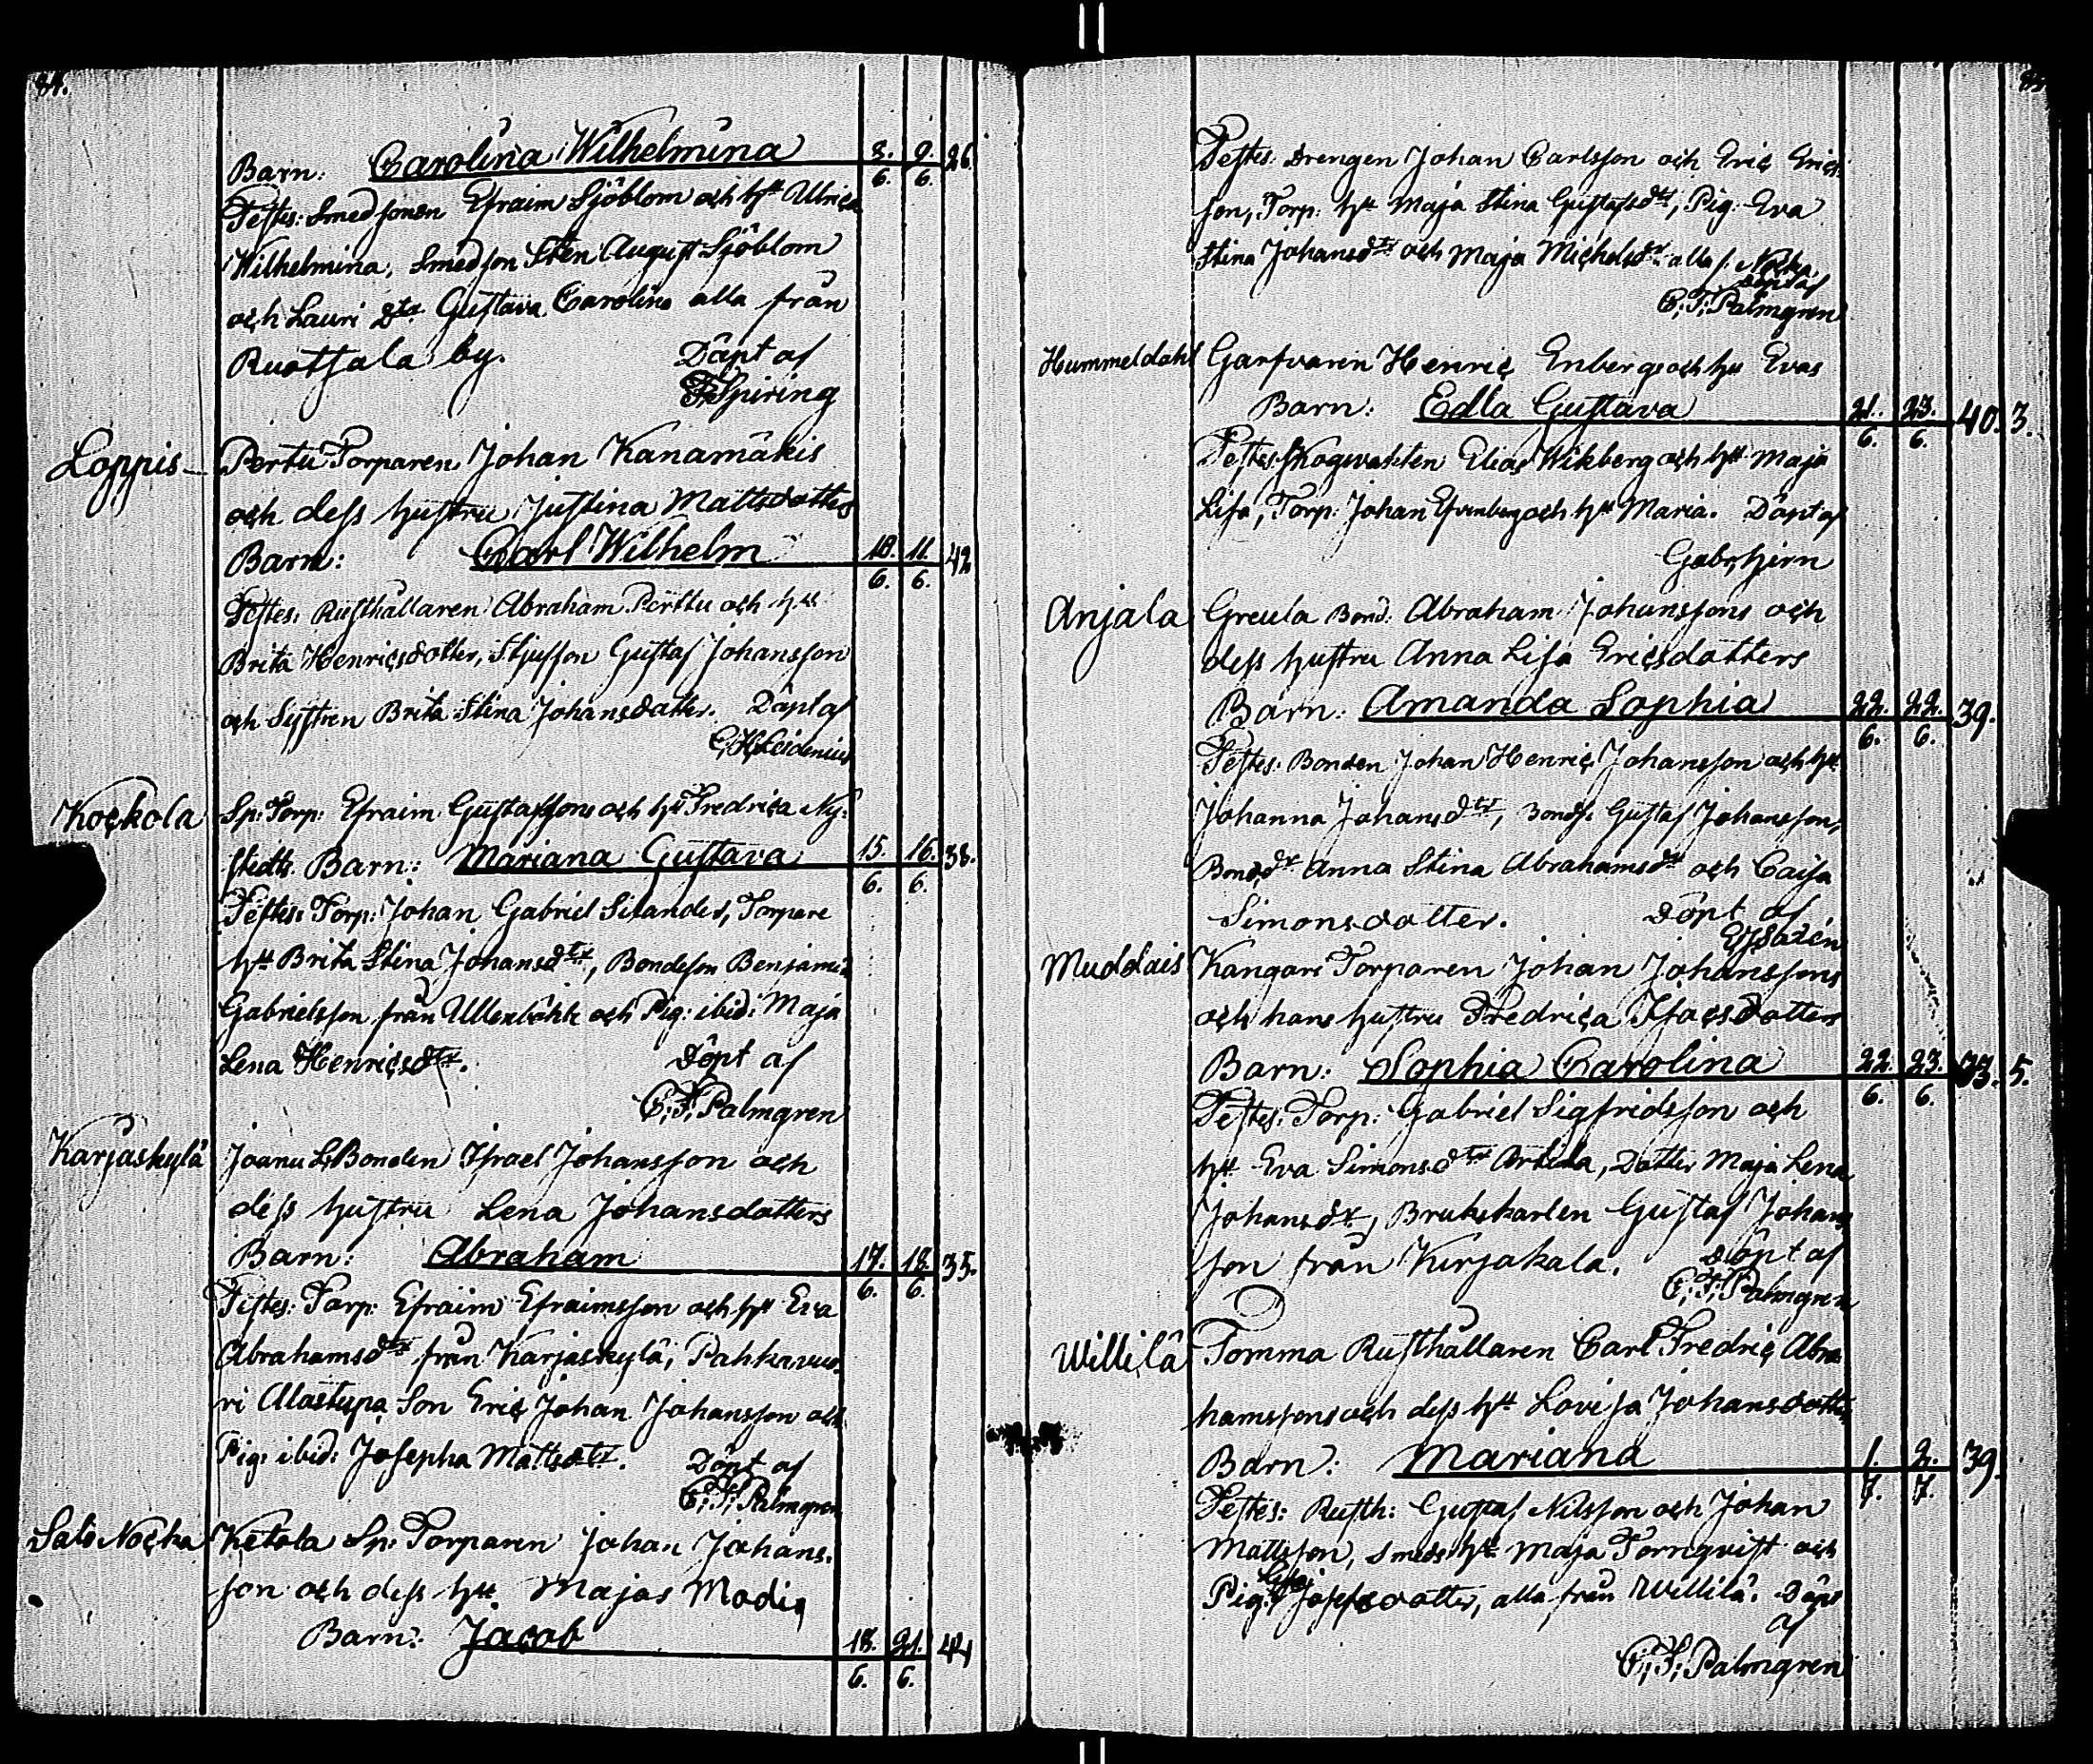 84.
Barn: Carolina Wilhelmina 8. 9. 26.
6. 6.
Testes: Smedsonen Efraim Sjöblom och hu Ulrica
Wilhelmina, Smedson Sten August Sjöblom
och Lauri dtr Gustava Carolina alla från
Ruotsala by. Döpt af
F. Spiring
Loppis Pertu Torparen Johan Kanamäkis
och dess hustru Justina Mattsdotters
Barn: Carl Wilhelm 10. 11. 42
6. 6.
Testes: Rusthållaren Abraham Perttu och hu
Brita Henricsdotter, Stjufson Gustaf Johansson
och Systren Brita Stina Johansdotter. Döpt af
Kockola Sp: Torp: Efraim Gustafssons och hu Fredrica Ny-
stedts Barn: Mariana Gustava 15. 16. 38.
6. 6.
Testes: Torp: Johan Gabriel Silander, Torpare
hu Brita Stina Johansdtr, Bondeson Benjamin
Gabrielsson från och Pig: ibid: Maja
Lena Henricsdtr. Döpt af
C. F. Palmgren
Karjaskylä Joanu Bonden Israel Johansson och
dess hustru Lena Johansdotters
Barn: Abraham 17. 18. 35.
6. 6.
Testes: Torp: Efraim Efraimsson och hu Eva
Abrahamsdtr från Karjaskylä, Pahkavuo-
ri Alastupa Son Eric Johan Johansson och
Pig: ibid: Josepha Mattsdtr. Döpt af
C. F. Palmgren
Salo Nocka Ketola Sp: Torparen Johan Johans-
son och dess hu Majas Modig
Barn: Jacob 18. 21. 44
6. 6.
Testes: Drengen Johan Carlsson och Eric Erics-
son, Torp: hu Maja Stina Gustafsdtr, Pig: Eva
Stina Johansdtr och Maja Michelsdtr alla f. Nocka
Döpt af
C. F. Palmgren
Hummeldahl Garfvaren Henric Enbergs och hu Evas
Barn: Edla Gustava 21. 23. 40. 3.
6. 6.
Testes: Skogvakten Elias Wikberg och hu Maja
Lisa, Torp: Johan och hu Maria. Döpt af
Gabr. Hjern
Anjala Greula Bond: Abraham Johanssons och
dess hustru Anna Lisa Ericsdotters
Barn: Amanda Sophia 22. 22. 39.
6. 6.
Testes: Bonden Johan Henric Johansson och hu
Johanna Johansdtr, Bonds: Gustaf Johansson,
Bondedtr Anna Stina Abrahamsdtr och Caisa
Simonsdotter. Döpt af
Muddais Kangari Torparen Johan Johanssons
och hans hustru Fredrica Isacsdotters
Barn: Sophia Carolina 22. 23. 33. 5.
6. 6.
Testes: Torp: Gabriel Sigfridsson och
hu Eva Simonsdtr, Dotter Maja Lena
Johansdtr, Brukskarlen Gustaf Johans-
son från Kirjakala. Döpt af
C. F. Palmgren
Willilä Tomma Rusthållaren Carl Fredric Abra-
hamssons och dess hu Lovisa Johansdotters
Barn: Mariana 1. 2. 39.
7. 7.
Testes: Rusth: Gustaf Nilsson och Johan
Mattsson, Smeds hu Maja Törnqvist och
Pig: Josefsdotter, alla från Willilä. Döpt
af
C. F. Palmgren